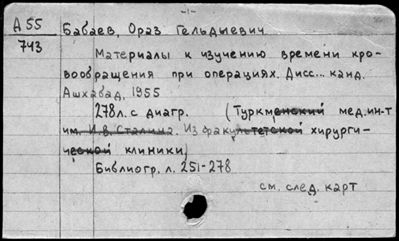 -1-
А 55 Бабаев, Ораз Гельдыевич.
743
Материалы к изучению времени кро-
вообращения при операциях. Дисс... канд.
Ашхабад, 1955
278л. с диагр. (Туркменский мед. ин-т
им. И.В. Сталина. Из факультетской хирурги-
ческой клиники)
Библиогр. л. 251-278
см. след. карт